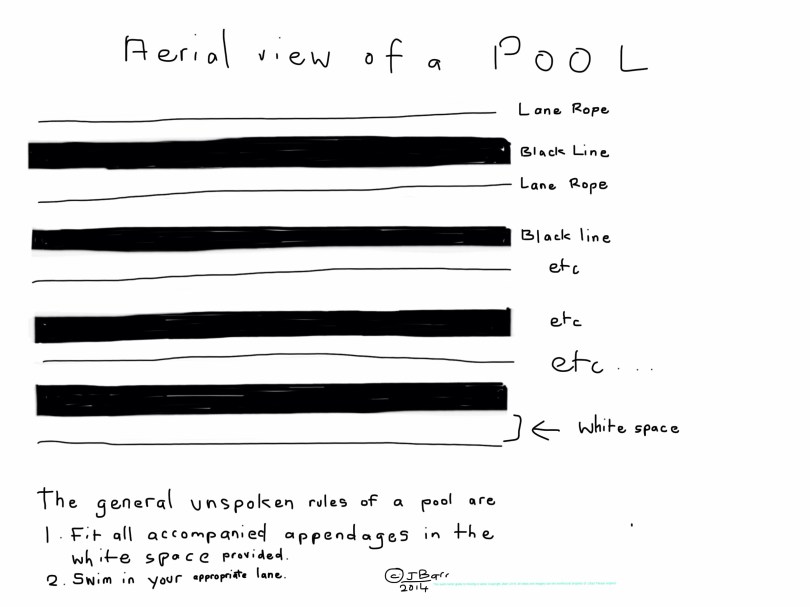 Aerial view of a POOL
Lane Rope
Black Line
Lane Rope
Black line
etc
etc
etc...
← White space
The general unspoken rules of a pool are
1. Fit all accompanied appendages in the
white space provided.
2. Swim in your appropriate lane.
© JBarr
2014